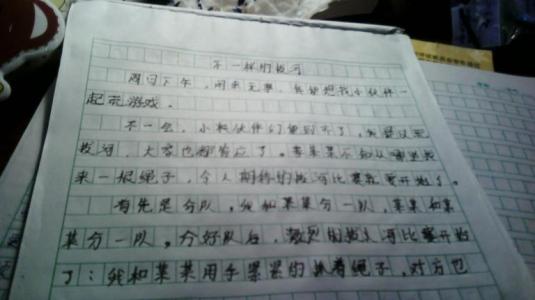 不一样的拔河
周日下午，闲来无事，我便想找小伙伴一
起玩游戏。
不一会，小伙伴们便到齐了，我提议玩
拔河，大家也都答应了。李某某不知从哪里找
来一根绳子，令人期待的拔河比赛就要开始了。
首先是分队，我和某某分一队，李某和某
某分一队。分好队后，激烈的拔河比赛开始
了：我和某某用手紧紧的抓着绳子，对方也